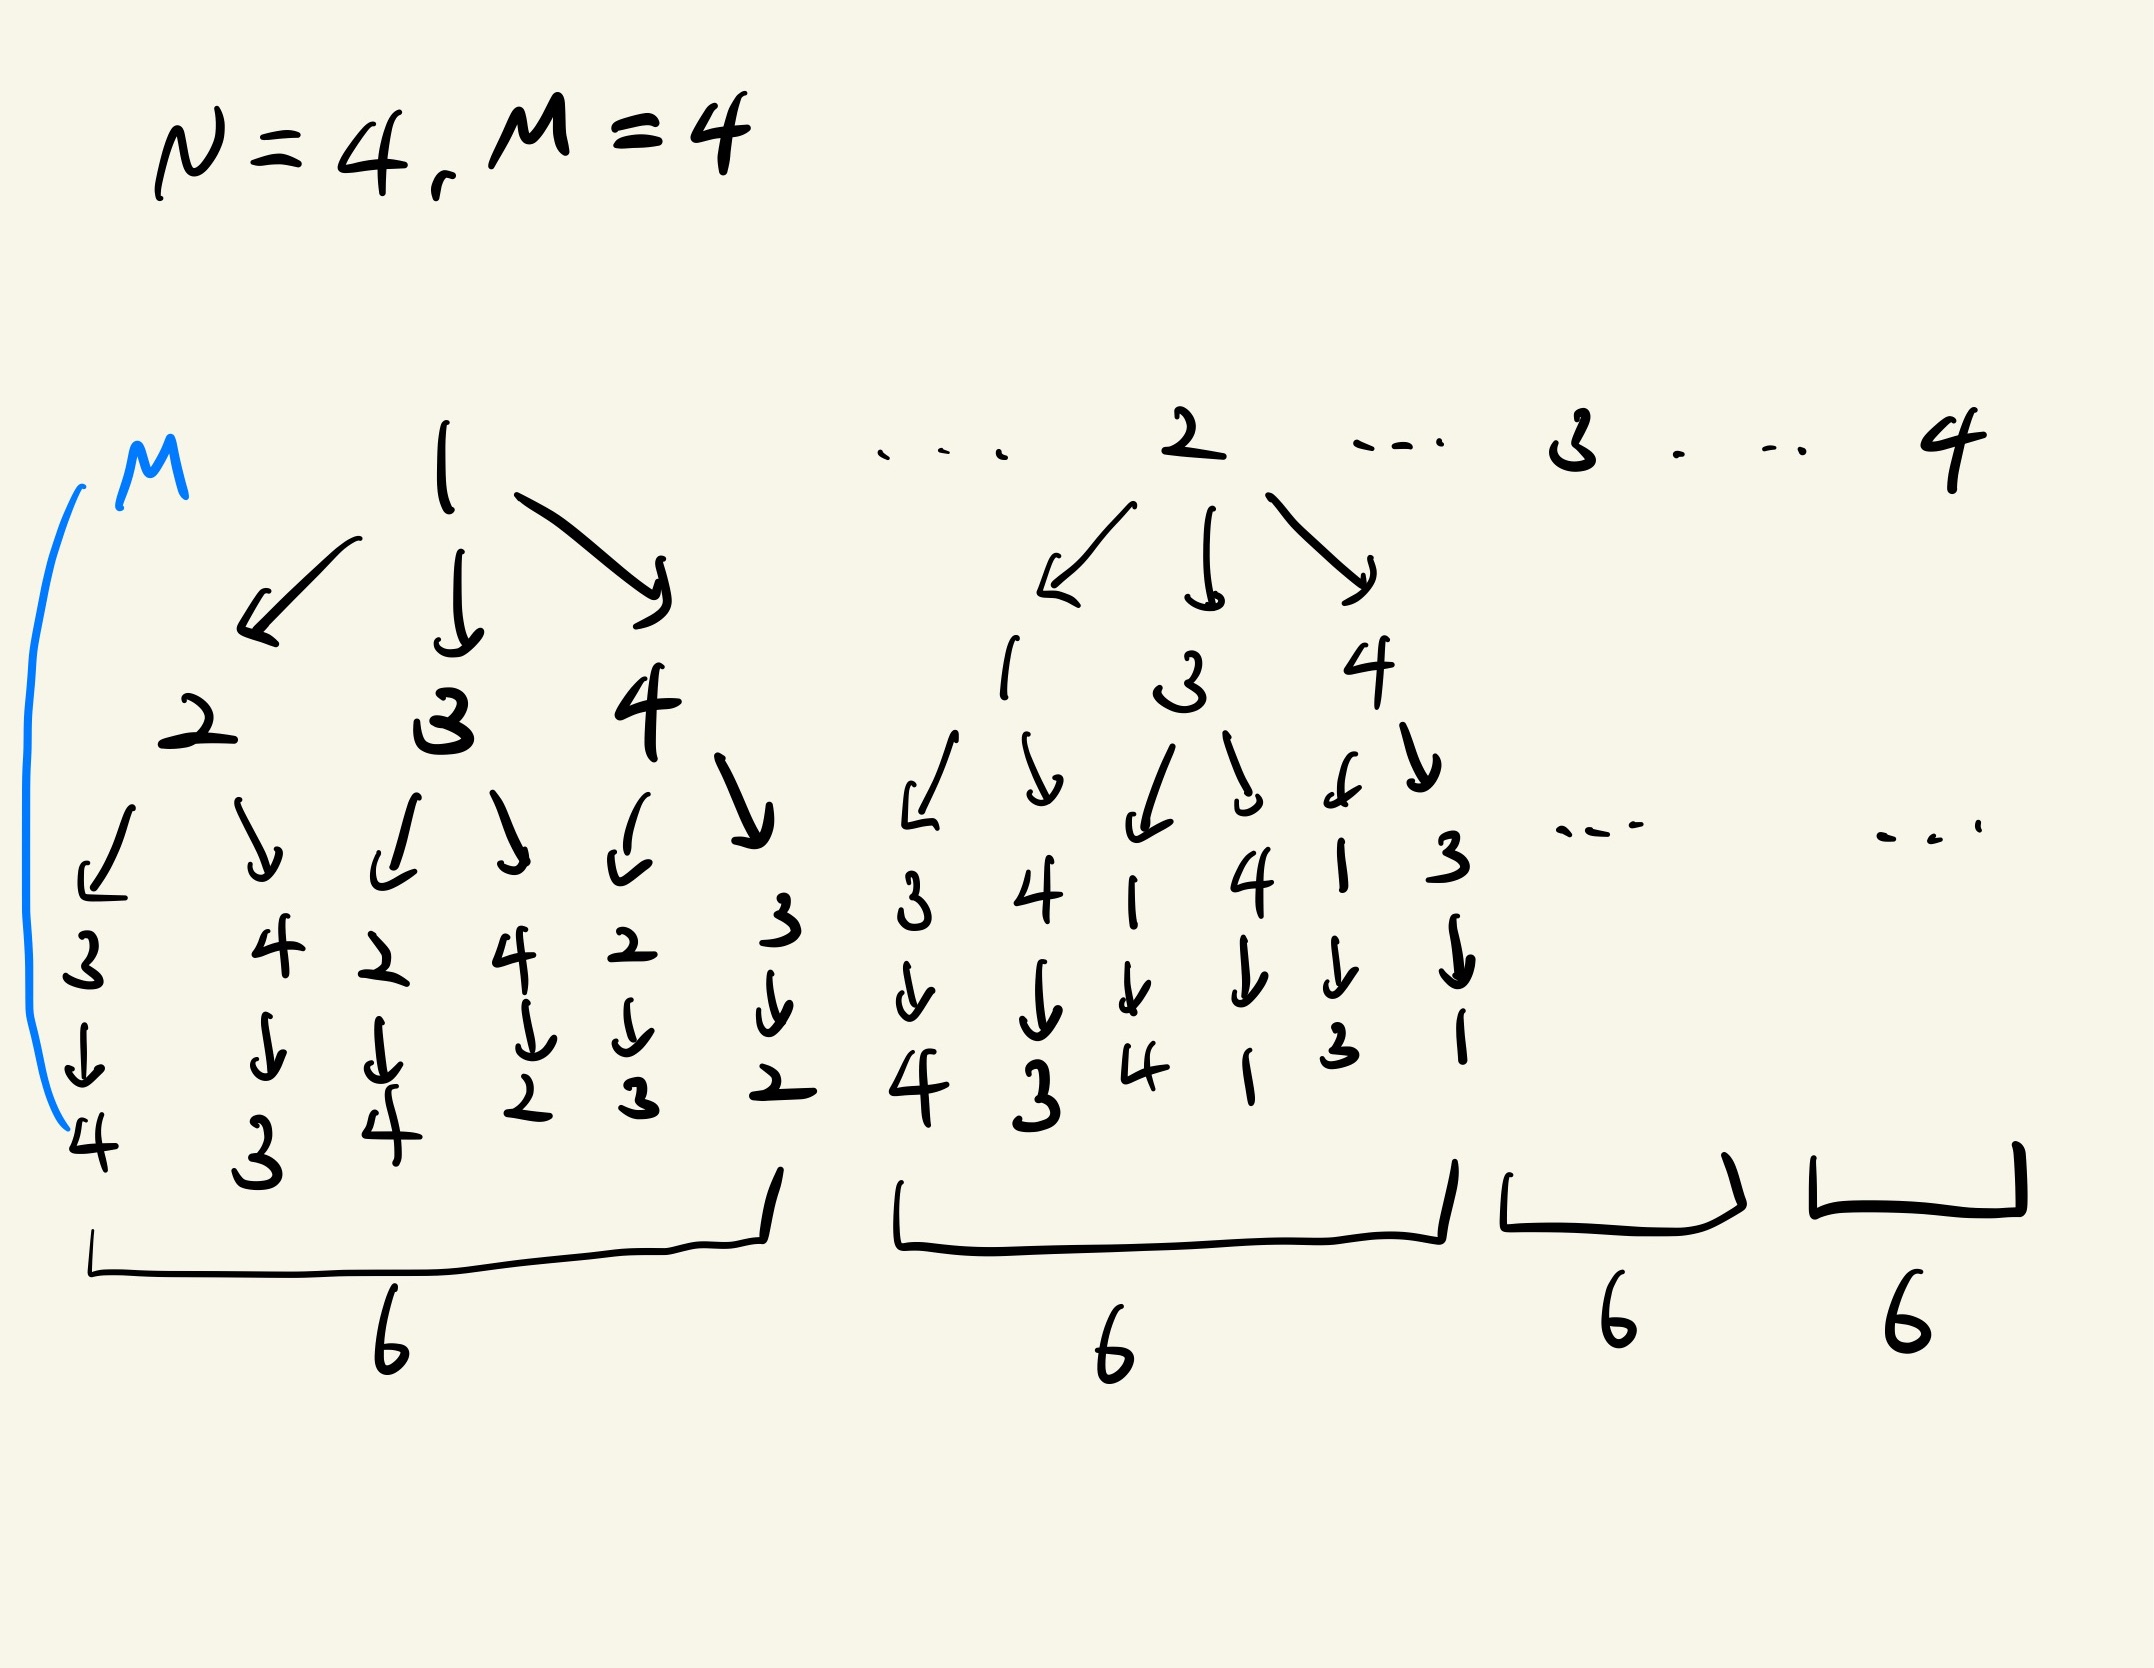 N = 4, M = 4
M 1 ... 2 ... 3 ... 4
2 3 4 1 3 4
3 4 2 4 2 3 3 4 1 4 1 3 ... ...
4 3 4 2 3 2 4 3 4 1 3 1
6 6 6 6